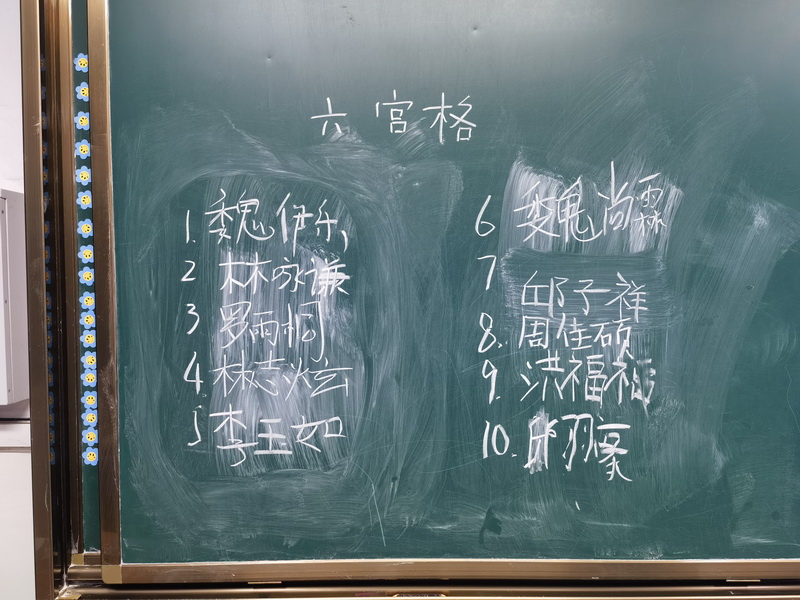 六宫格
1. 魏伊乐
2 林家谦
3 罗雨桐
4. 林志炫
5 李玉如
6 魏尚霖
7 邱子祥
8. 周佳硕
9. 洪福
10. 邱羽豪